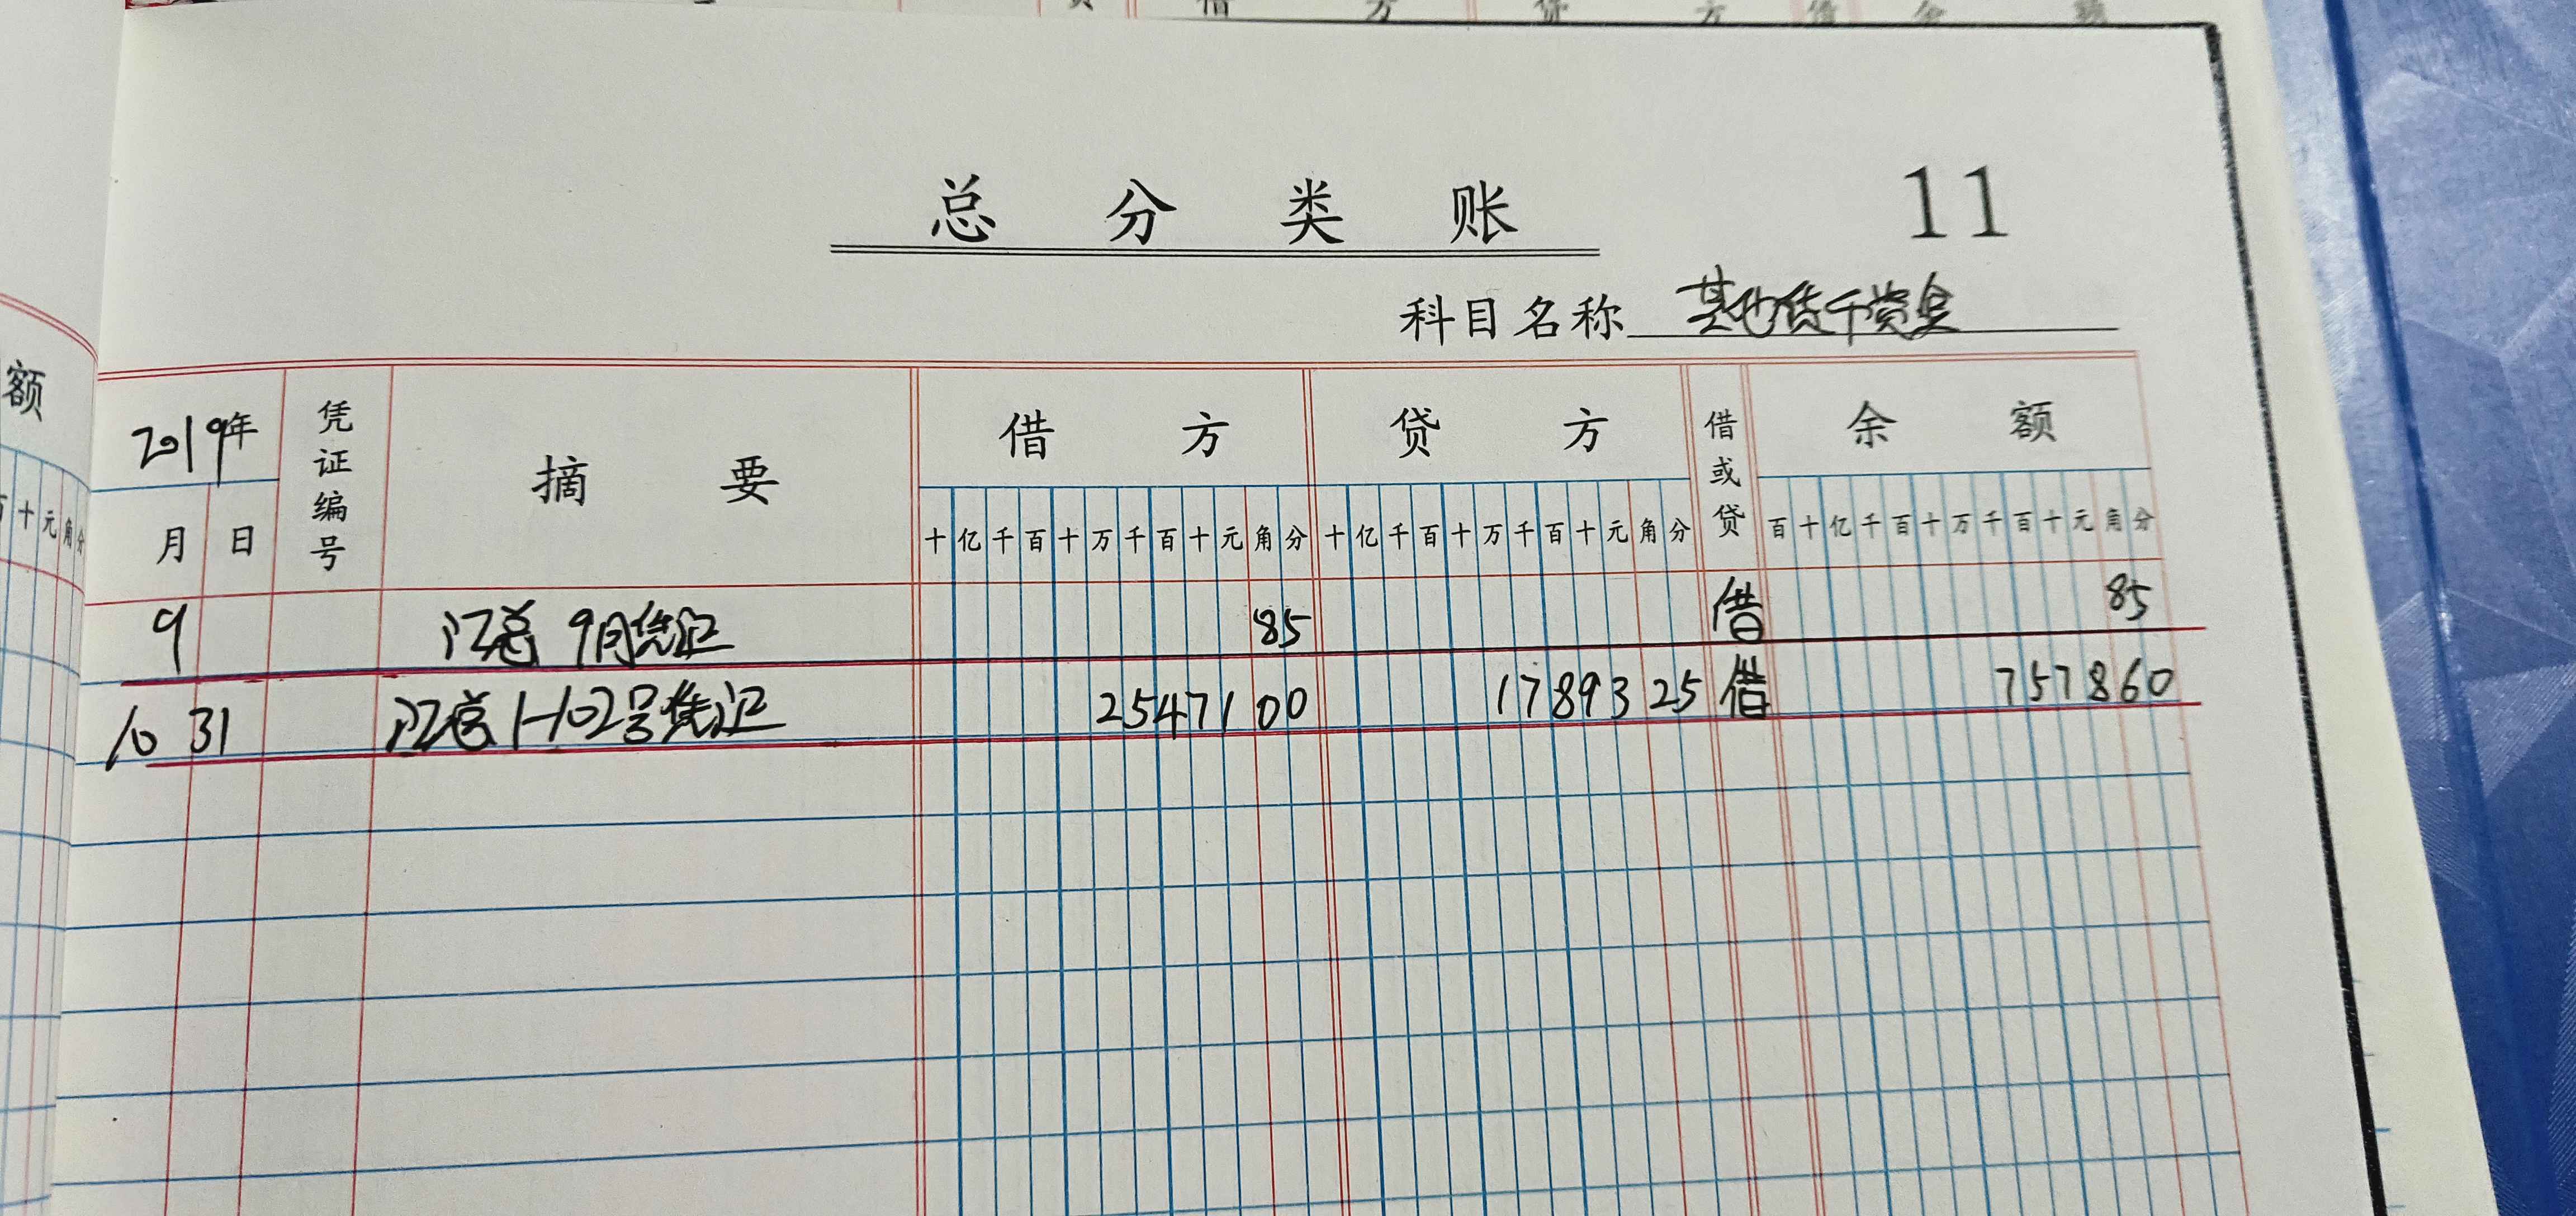 总分类账 11
科目名称 其他货币资金
2019年 凭证编号 摘要 借方 贷方 借或贷 余额
月 日 十亿千百十万千百十元角分 十亿千百十万千百十元角分 百十亿千百十万千百十元角分
9 汇总 9月凭证 85 借 85
10 31 汇总1-102号凭证 25471 00 17893 25 借 757860
额
百十元角分